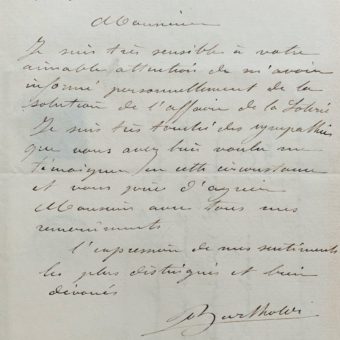 Monsieur
Je suis très sensible à votre
aimable attention de m'avoir
informé personnellement de la
solution de l'affaire de la Loterie
Je suis très touché des sympathies
que vous avez bien voulu me
témoigner en cette circonstance
et vous prie d'agréer
Monsieur avec tous mes
remerciements
l'expression de mes sentiments
les plus distingués et bien
dévoués
Bartholdi